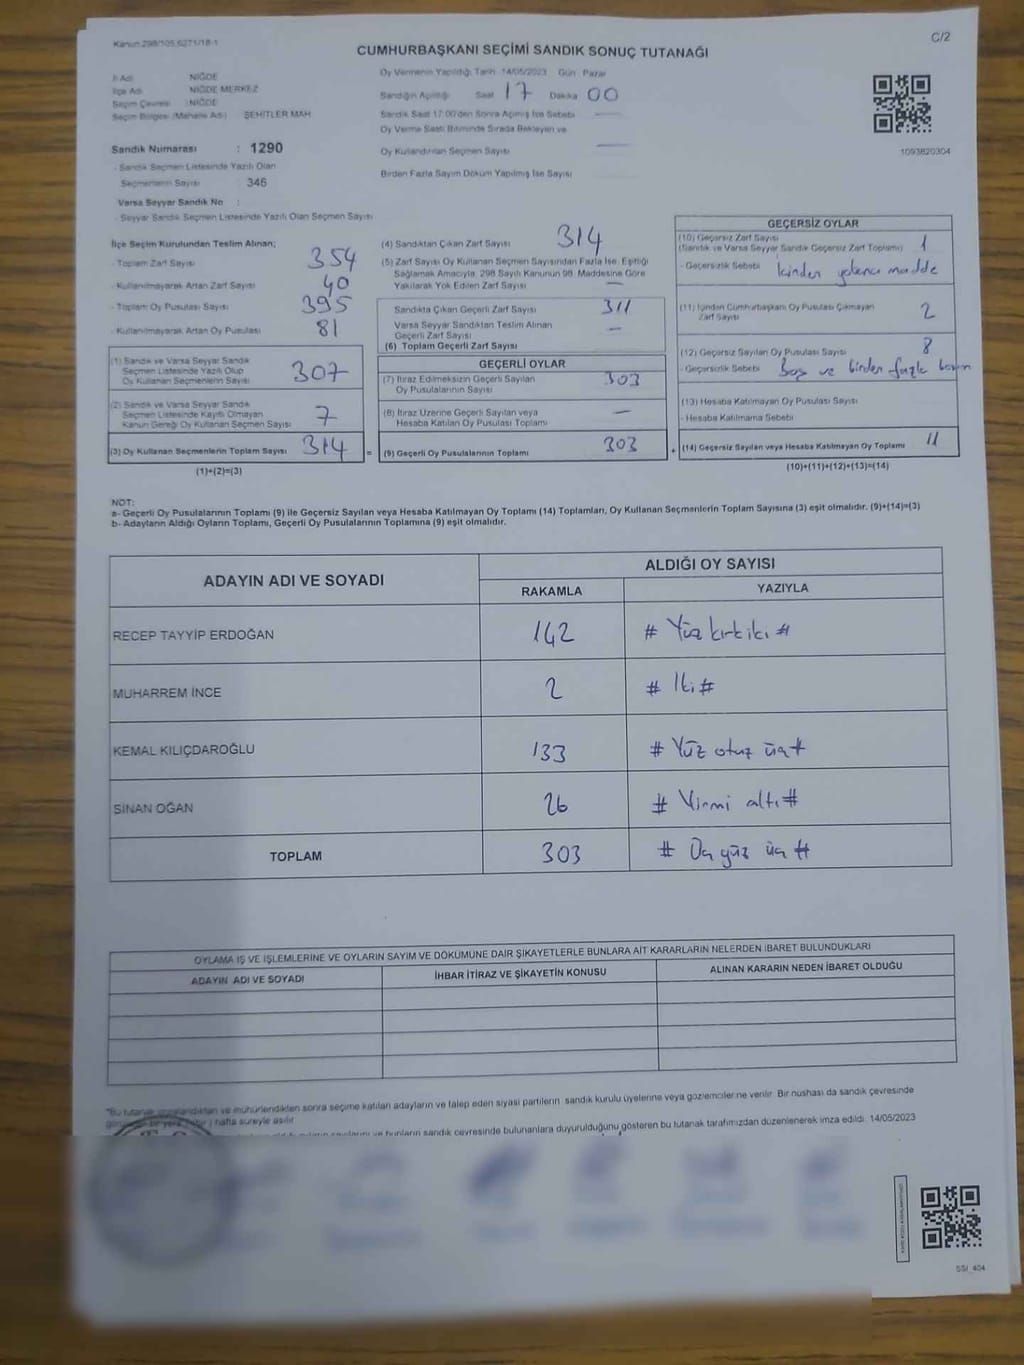 Kanun 298/105,6271/18-1
C/2
CUMHURBAŞKANI SEÇİMİ SANDIK SONUÇ TUTANAĞI
İl Adı NİĞDE
İlçe Adı NİĞDE MERKEZ
Seçim Çevresi : NİĞDE
Seçim Bölgesi (Mahalle Adı) ŞEHİTLER MAH
Sandık Numarası : 1290
- Sandık Seçmen Listesinde Yazılı Olan
Seçmenlerin Sayısı 346
Varsa Seyyar Sandık No :
- Seyyar Sandık Seçmen Listesinde Yazılı Olan Seçmen Sayısı
Oy Vermenin Yapıldığı Tarih 14/05/2023 Gün Pazar
Sandığın Açılışı Saat 17 Dakika 00
Sandık Saat 17:00'den Sonra Açılmış İse Sebebi
Oy Verme Saati Bitiminde Sırada Bekleyen ve
Oy Kullandırılan Seçmen Sayısı
Birden Fazla Sayım Döküm Yapılmış İse Sayısı
1093820304
İlçe Seçim Kurulundan Teslim Alınan;
- Toplam Zarf Sayısı 354
- Kullanılmayarak Artan Zarf Sayısı 40
- Toplam Oy Pusulası Sayısı 395
- Kullanılmayarak Artan Oy Pusulası 81
(1) Sandık ve Varsa Seyyar Sandık
Seçmen Listesinde Yazılı Olup
Oy Kullanan Seçmenlerin Sayısı 307
(2) Sandık ve Varsa Seyyar Sandık
Seçmen Listesinde Kayıtlı Olmayan
Kanun Gereği Oy Kullanan Seçmen Sayısı 7
(3) Oy Kullanan Seçmenlerin Toplam Sayısı 314 =
(1)+(2)=(3)
(4) Sandıktan Çıkan Zarf Sayısı 314
(5) Zarf Sayısı Oy Kullanan Seçmen Sayısından Fazla İse, Eşitliği
Sağlamak Amacıyla, 298 Sayılı Kanunun 98. Maddesine Göre
Yakılarak Yok Edilen Zarf Sayısı —
Sandıkta Çıkan Geçerli Zarf Sayısı 311
Varsa Seyyar Sandıktan Teslim Alınan
Geçerli Zarf Sayısı —
(6) Toplam Geçerli Zarf Sayısı
GEÇERLİ OYLAR
(7) İtiraz Edilmeksizin Geçerli Sayılan
Oy Pusulalarının Sayısı 303
(8) İtiraz Üzerine Geçerli Sayılan veya
Hesaba Katılan Oy Pusulası Toplamı —
(9) Geçerli Oy Pusulalarının Toplamı 303 +
GEÇERSİZ OYLAR
(10) Geçersiz Zarf Sayısı
(Sandık ve Varsa Seyyar Sandık Geçersiz Zarf Toplamı) 1
- Geçersizlik Sebebi İçinden yabancı madde
(11) İçinden Cumhurbaşkanı Oy Pusulası Çıkmayan
Zarf Sayısı 2
(12) Geçersiz Sayılan Oy Pusulası Sayısı 8
- Geçersizlik Sebebi Boş ve birden fazla
(13) Hesaba Katılmayan Oy Pusulası Sayısı
- Hesaba Katılmama Sebebi
(14) Geçersiz Sayılan veya Hesaba Katılmayan Oy Toplamı 11
(10)+(11)+(12)+(13)=(14)
NOT:
a- Geçerli Oy Pusulalarının Toplamı (9) ile Geçersiz Sayılan veya Hesaba Katılmayan Oy Toplamı (14) Toplamları, Oy Kullanan Seçmenlerin Toplam Sayısına (3) eşit olmalıdır. (9)+(14)=(3)
b- Adayların Aldığı Oyların Toplamı, Geçerli Oy Pusulalarının Toplamına (9) eşit olmalıdır.
ADAYIN ADI VE SOYADI
ALDIĞI OY SAYISI
RAKAMLA YAZIYLA
RECEP TAYYİP ERDOĞAN 142 # Yüz kırk iki #
MUHARREM İNCE 2 # İki #
KEMAL KILIÇDAROĞLU 133 # Yüz otuz üç #
SİNAN OĞAN 26 # Yirmi altı #
TOPLAM 303 # Üç yüz üç #
OYLAMA İŞ VE İŞLEMLERİNE VE OYLARIN SAYIM VE DÖKÜMÜNE DAİR ŞİKAYETLERLE BUNLARA AİT KARARLARIN NELERDEN İBARET BULUNDUKLARI
ADAYIN ADI VE SOYADI İHBAR İTİRAZ VE ŞİKAYETİN KONUSU ALINAN KARARIN NEDEN İBARET OLDUĞU
*Bu tutanak imzalandıktan ve mühürlendikten sonra seçime katılan adayların ve talep eden siyasi partilerin sandık kurulu üyelerine veya gözlemcilerine verilir. Bir nüshası da sandık çevresinde
bir yere hafta süreyle asılır
bunların sandık çevresinde bulunanlara duyurulduğunu gösteren bu tutanak tarafımızdan düzenlenerek imza edildi. 14/05/2023
SSI_404